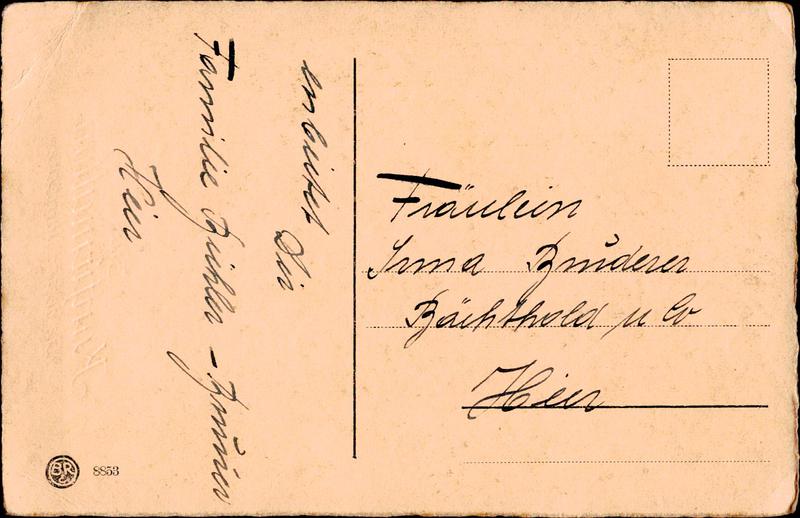 entbietet
Dir
Familie Bühler - Brunner
Hier
Fräulein
Irma Bruderer
Bächthold u Co
Hier
BR
8853